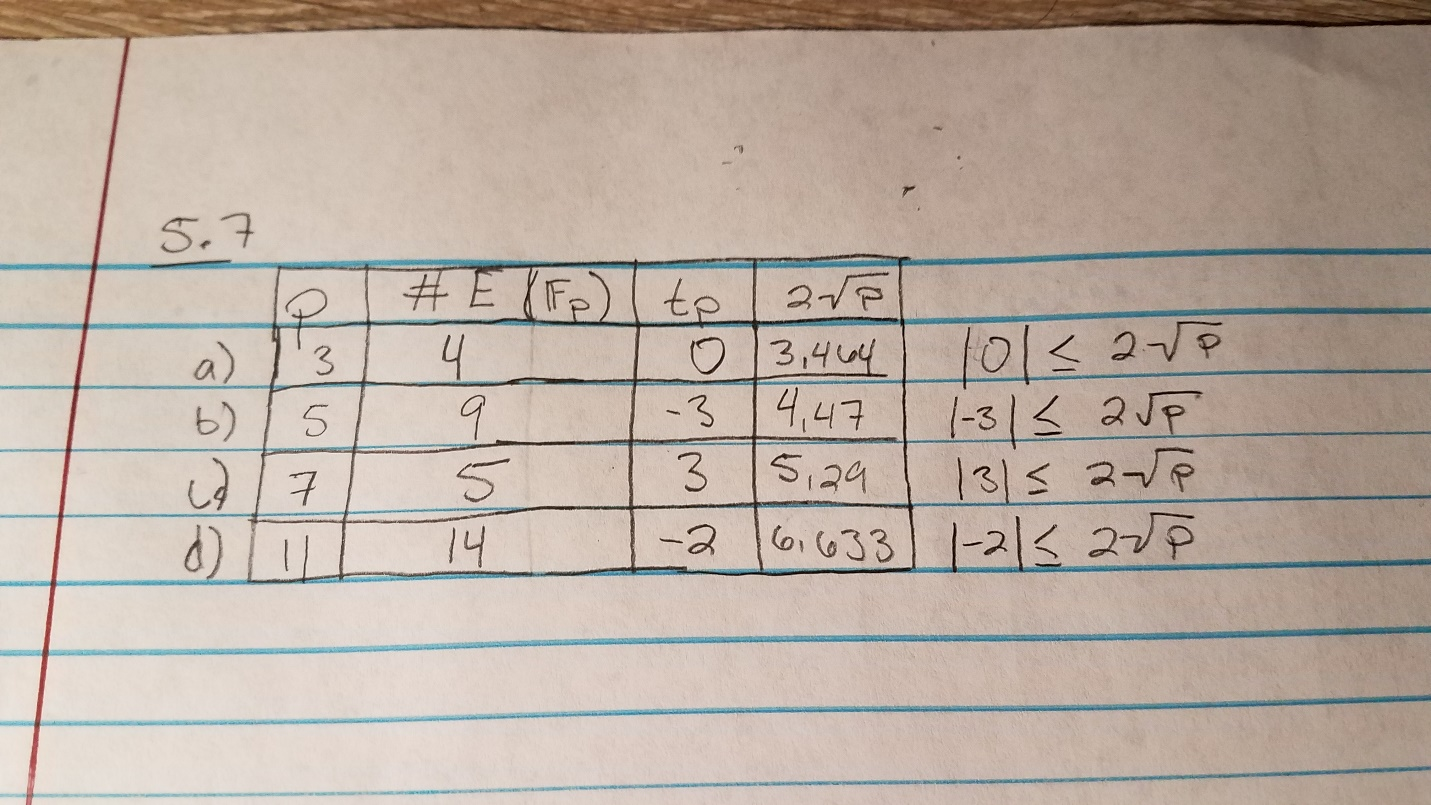 5.7
p # E (𝔽p) tp 2√p
a) 3 4 0 3.464 |0| ≤ 2√p
b) 5 9 -3 4.47 |-3| ≤ 2√p
c) 7 5 3 5.29 |3| ≤ 2√p
d) 11 14 -2 6.633 |-2| ≤ 2√p